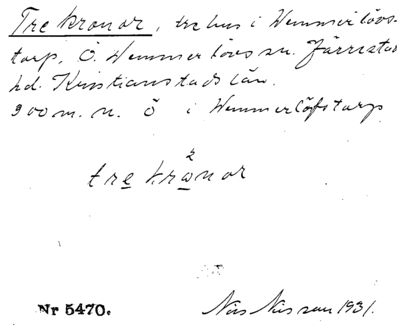 Tre kronor, tre hus i Wemmerlövs-
torp, Ö. Wemmerlövs sn. Järrestad
hd. Kristianstads län.
900 m. n. Ö i Wemmerlöfstorp
2
tre kronor
Nr 5470. Nils Nilsson 1931.